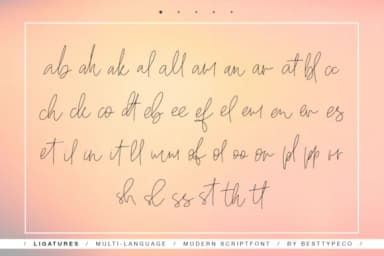 ab ah ak al all am an ar at bl cc
ch ck co dt eb ee ef el em en er es
et il in it ll mm of ol oo or pl pp rr
sh sl ss st th tt
/ LIGATURES / MULTI-LANGUAGE / MODERN SCRIPTFONT / BY BESTTYPECO /